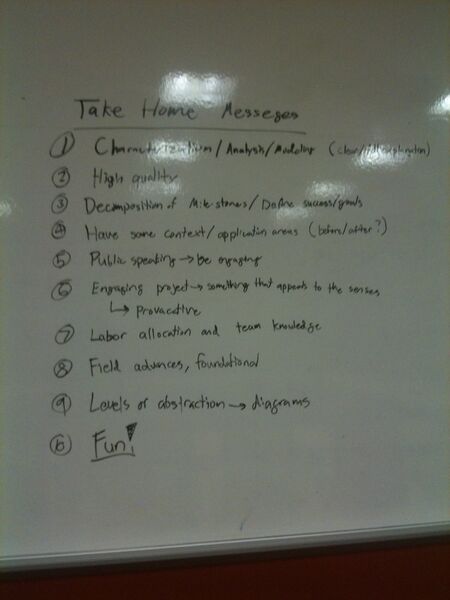 Take Home Messeges
① Characterization/Analysis/Modeling (clear/
② High quality
③ Decomposition of Milestones/Define success/goals
④ Have some context/application areas (before/after?)
⑤ Public speaking → be engaging
⑥ Engaging project → something that appeals to the senses
↳ Provacative
⑦ Labor allocation and team knowledge
⑧ Field advances, foundational
⑨ Levels of abstraction → diagrams
⑩ Fun!